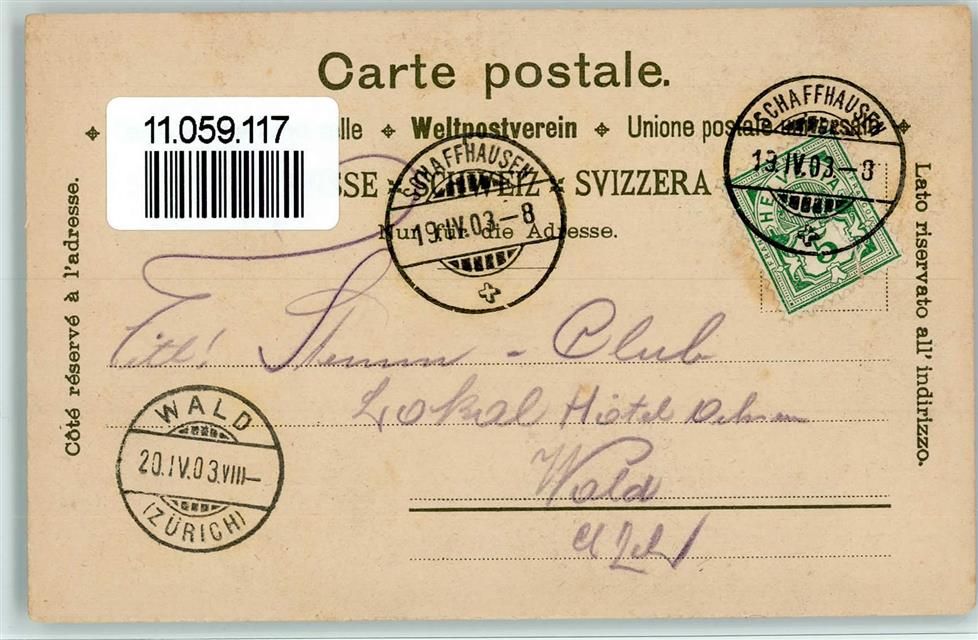 Carte postale.
11.059.117
elle Weltpostverein Unione postale universale
SSE SCHWEIZ SVIZZERA
Nur für die Adresse.
SCHAFFHAUSEN
19.IV.03-8
SCHAFFHAUSEN
19.IV.03-8
HELVETIA
FRANCO
5
Côté réservé à l'adresse.
Lato riservato all' indirizzo.
Titl! Stemm-Club
Lokal Hôtel Ochsen
Wald
Ct Zch
WALD
20.IV.03.VIII-
(ZÜRICH)